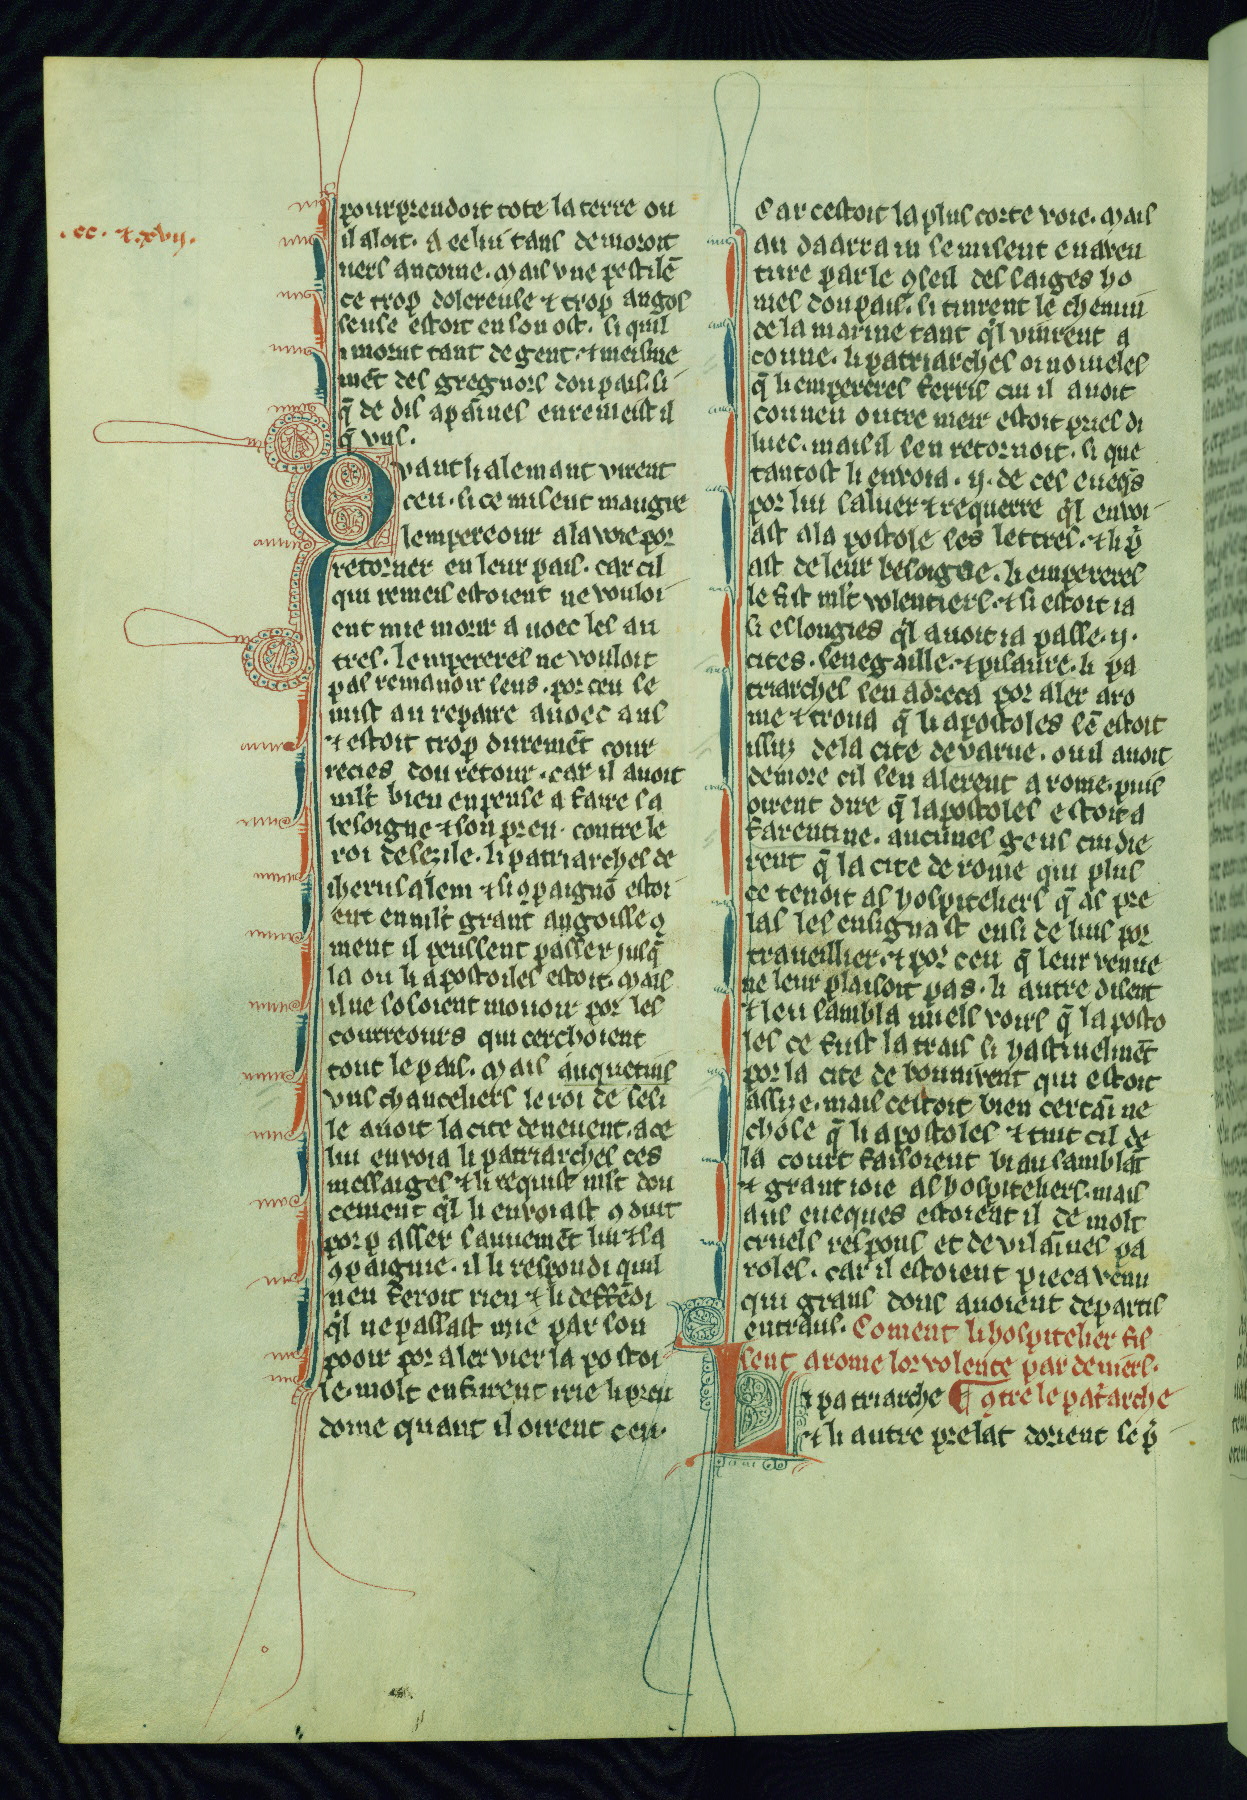 .cc. ⁊ .xvij.
pourprendoit tote la terre ou
il aloit. a celui tans demoroit
vers ancoine. Mais vne pestilē
ce trop dolereuse ⁊ trop angois
seuse estoit en son ost. si quil
i morut tant de gent. ⁊ meisme
mēt des gregnors dou pais. si
q̄ de dis a paines en remeist il
q̄ vns.
Quant li alemant virent
ceu. si ce misent maugre
lempereour a la voie por
retorner en leur pais. car cil
qui remeis estoient ne vouloi
ent mie morir auoec les au
tres. lempereres ne vouloit
pas remanoir seus. por ceu se
mist au repaire auoec aus
⁊ estoit trop duremēt cour
recies dou retour. car il auoit
ml't bien enpense a faire sa
besoigne ⁊ son preu. contre le
roi de sezile. li patriarches de
iherusalem ⁊ si ꝯpaignō estoi
ent en ml't grant angoisse ꝯ
ment il peussent passer jusq̄
la ou li apostoiles estoit. Mais
il ne sosoient mouoir por les
courreours qui cerchoient
tout le pais. Mais auquetuis
vns chanceliers le roi de sesi
le auoit la cite deneuent. a ce
lui enuoia li patriarches ces
messaiges ⁊ li requist ml't dou
cement q'l li enuoiast ꝯduit
por passer sauuemēt lui ⁊ sa
ꝯpaignie. il li respondi quil
nen feroit rien ⁊ li deffēdi
q'l ne passast mie par son
pooir por aler vier la postoi
le. molt en furent irie li preu
dome quant il oirent ceu.
Car cestoit la plus corte voie. Mais
au daarrain se misent en auen
ture par le ꝯseil des saiges ho
mes dou pais. si tinrent le chemin
de la marine tant q'l vinrent a
coune. li patriarches oi noueles
q̄ li empereres ferris cui il auoit
conneu outre meir estoit pries di
luec. mais il sen retornoit. si que
tantost li enuoia .ij. de ces eueq's
por lui saluer ⁊ requerre q'l enuoi
ast a la postole ses lettres. ⁊ li p'i
ast de leur besoigne. li empereres
le fist ml't volentiers. ⁊ si estoit ia
si eslongies q'l auoit ia passe .ij.
cites. senegaille. ⁊ pisaure. li pa
triarches sen adreca por aler a ro
me ⁊ troua q̄ li apostoles sē estoit
issuz de la cite de varne. ou il auoit
demore cil sen alerent a rome. puis
oirent dire q̄ lapostoles estoit a
farentine. aucunes gens cuidie
rent q̄ la cite de rome qui plus
ce tenoit as hospiteliers q̄ as pre
las les ensignast ensi de lius por
traueillier. ⁊ por ceu q̄ leur venue
ne leur plaisoit pas. li autre disent
⁊ leu sambla mieus voirs q̄ la posto
les ce fust la trais si hastiuelmēt
por la cite de bonniuent qui estoit
assize. mais cestoit bien certaine
chose q̄ li apostoles ⁊ tuit cil de
la court faisoient biau samblāt
⁊ grant ioie as hospiteliers. mais
aus eueques estoient il de molt
cruels respons et de vilaines pa
roles. car il estoient pieca venu
qui grans dons auoient departis
entraus. Coment li hospitelier fis
sent a rome lor volente par deniers.
Li patriarche ¶ ꝯtre le pat'arche
⁊ li autre prelat dorent le p'